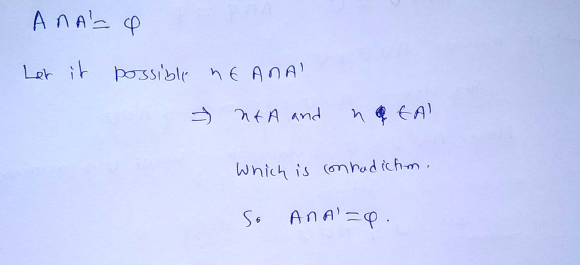 A ∩ A' = φ
Let it possible x ∈ A ∩ A'
⇒ x ∈ A and x ∈ A'
Which is contradiction.
So A ∩ A' = φ.